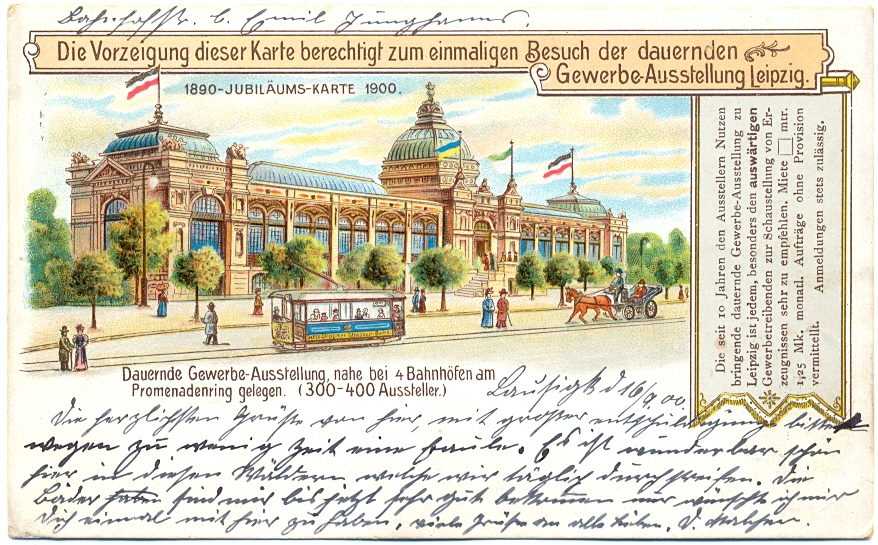 Bahnhofstr. b. Emil Junghanns.
Die Vorzeigung dieser Karte berechtigt zum einmaligen Besuch der dauernden
Gewerbe-Ausstellung Leipzig.
1890-JUBILÄUMS-KARTE 1900.
Die seit 10 Jahren den Ausstellern Nutzen
bringende dauernde Gewerbe-Ausstellung zu
Leipzig ist jedem, besonders den auswärtigen
Gewerbetreibenden zur Schaustellung von Er-
zeugnissen sehr zu empfehlen. Miete □ mtr.
1,25 Mk. monatl. Aufträge ohne Provision
vermittelt. Anmeldungen stets zulässig.
Dauernde Gewerbe-Ausstellung, nahe bei 4 Bahnhöfen am
Promenadenring gelegen. (300-400 Aussteller.)
Lausigk d 16/9 00.
Die herzlichsten Grüße von hier mit großer entschuldigung bitte
wegen zu wenig Zeit eine faule. Es ist wunderbar schön
hier in diesen Wäldern welche wir täglich durchstreifen. Die
Bäder haben sind mir bis jetzt sehr gut bekommen nur wünscht ich mir
Dich einmal mit hier zu haben, viele Grüße an alle